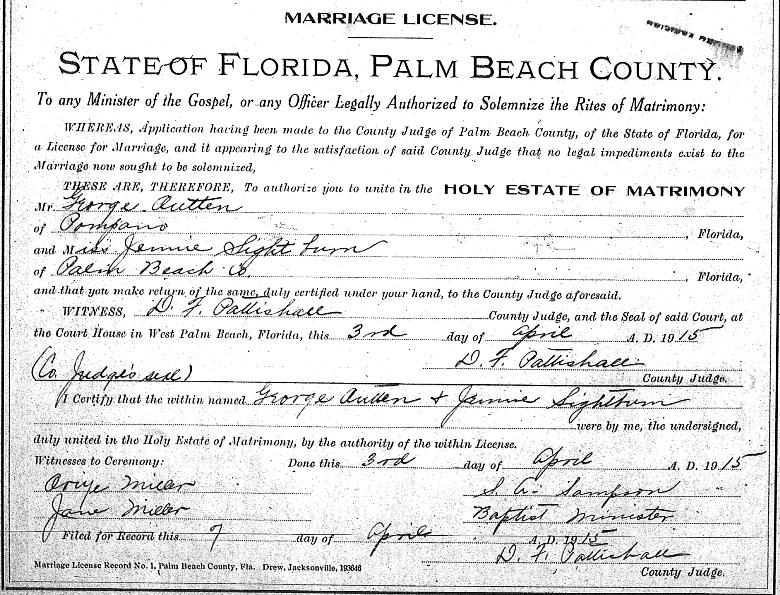 MARRIAGE LICENSE.
STATE OF FLORIDA, PALM BEACH COUNTY.
To any Minister of the Gospel, or any Officer Legally Authorized to Solemnize the Rites of Matrimony:
WHEREAS, Application having been made to the County Judge of Palm Beach County, of the State of Florida, for
a License for Marriage, and it appearing to the satisfaction of said County Judge that no legal impediments exist to the
Marriage now sought to be solemnized,
THESE ARE, THEREFORE, To authorize you to unite in the HOLY ESTATE OF MATRIMONY
Mr. George Autten
of Pompano, Florida,
and Miss Jennie Sightburn
of Palm Beach Co., Florida,
and that you make return of the same, duly certified under your hand, to the County Judge aforesaid.
WITNESS, D. F. Pattishall County Judge, and the Seal of said Court, at
the Court House in West Palm Beach, Florida, this 3rd day of April A. D. 1915
D. F. Pattishall
(Co. Judge's seal) County Judge.
I Certify that the within named George Autten & Jennie Sightburn
were by me, the undersigned,
duly united in the Holy Estate of Matrimony, by the authority of the within License.
Witnesses to Ceremony: Done this 3rd day of April A. D. 1915
Miller S. A. Sampson
Jane Miller Baptist Minister
Filed for Record this 7 day of April A. D. 1915
D. F. Pattishall
Marriage License Record No. 1, Palm Beach County, Fla. Drew, Jacksonville, 193646 County Judge.